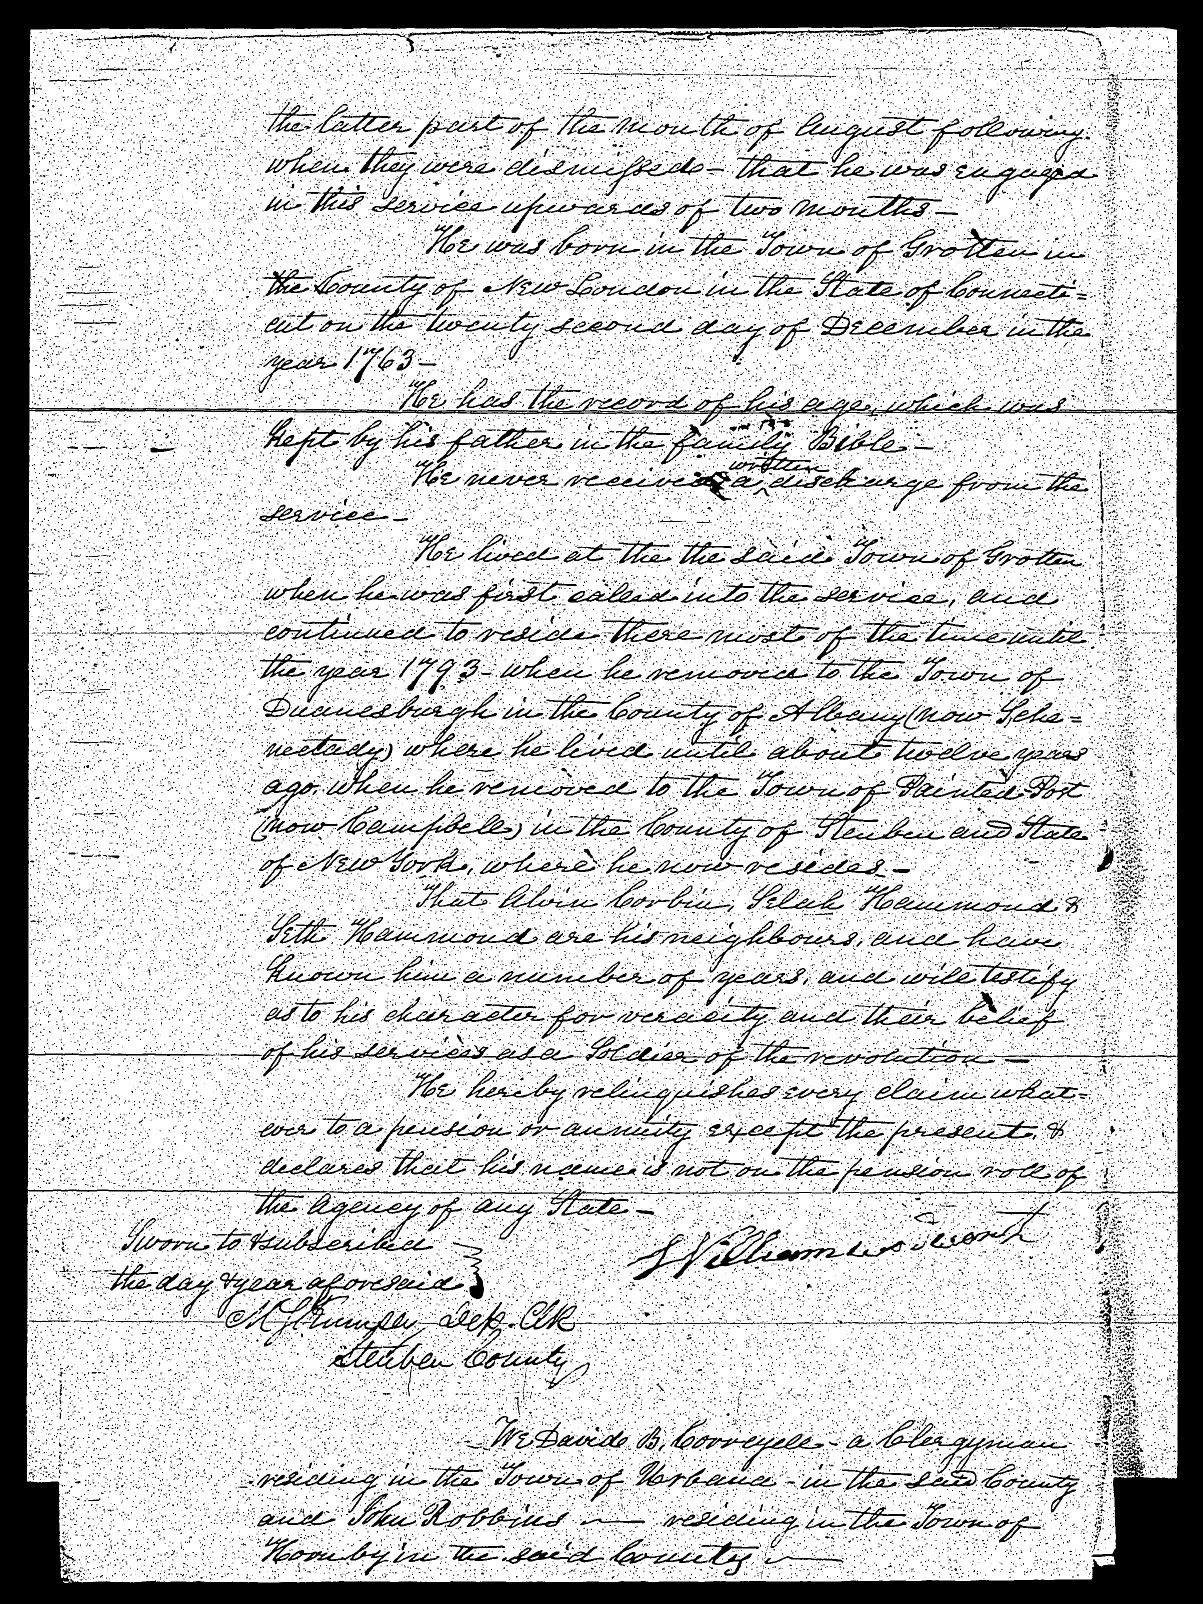 the latter part of the month of August following
when they were dismissed - that he was engaged
in this service upwards of two months -
He was born in the Town of Grotten in
the County of New London in the State of Connecti=
cut on the twenty second day of December in the
year 1763 -
He has the record of his age, which was
kept by his father in the family Bible -
written
He never received a discharge from the
service -
He lived at the the said Town of Grotten
when he was first called into the service, and
continued to reside there most of the time until
the year 1793 - when he removed to the Town of
Duanesburgh in the County of Albany (now Sche=
nectady) where he lived until about twelve years
ago when he removed to the Town of Painted Post
(now Campbell) in the County of Steuben and State
of New York, where he now resides -
That Alvin Corbin, Selah Hammond &
Seth Hammond are his neighbours, and have
known him a number of years, and will testify
as to his character for veracity and their belief
of his services as a Soldier of the revolution -
He hereby relinquishes every claim what=
ever to a pension or annuity except the present &
declares that his name is not on the pension roll of
the Agency of any State -
Sworn to & subscribed
the day & year aforesaid
William
Dep. Clk
Steuben County
We David B. - a Clergyman
residing in the Town of Urbana - in the said County
and John Robbins residing in the Town of
Hornby in the said County